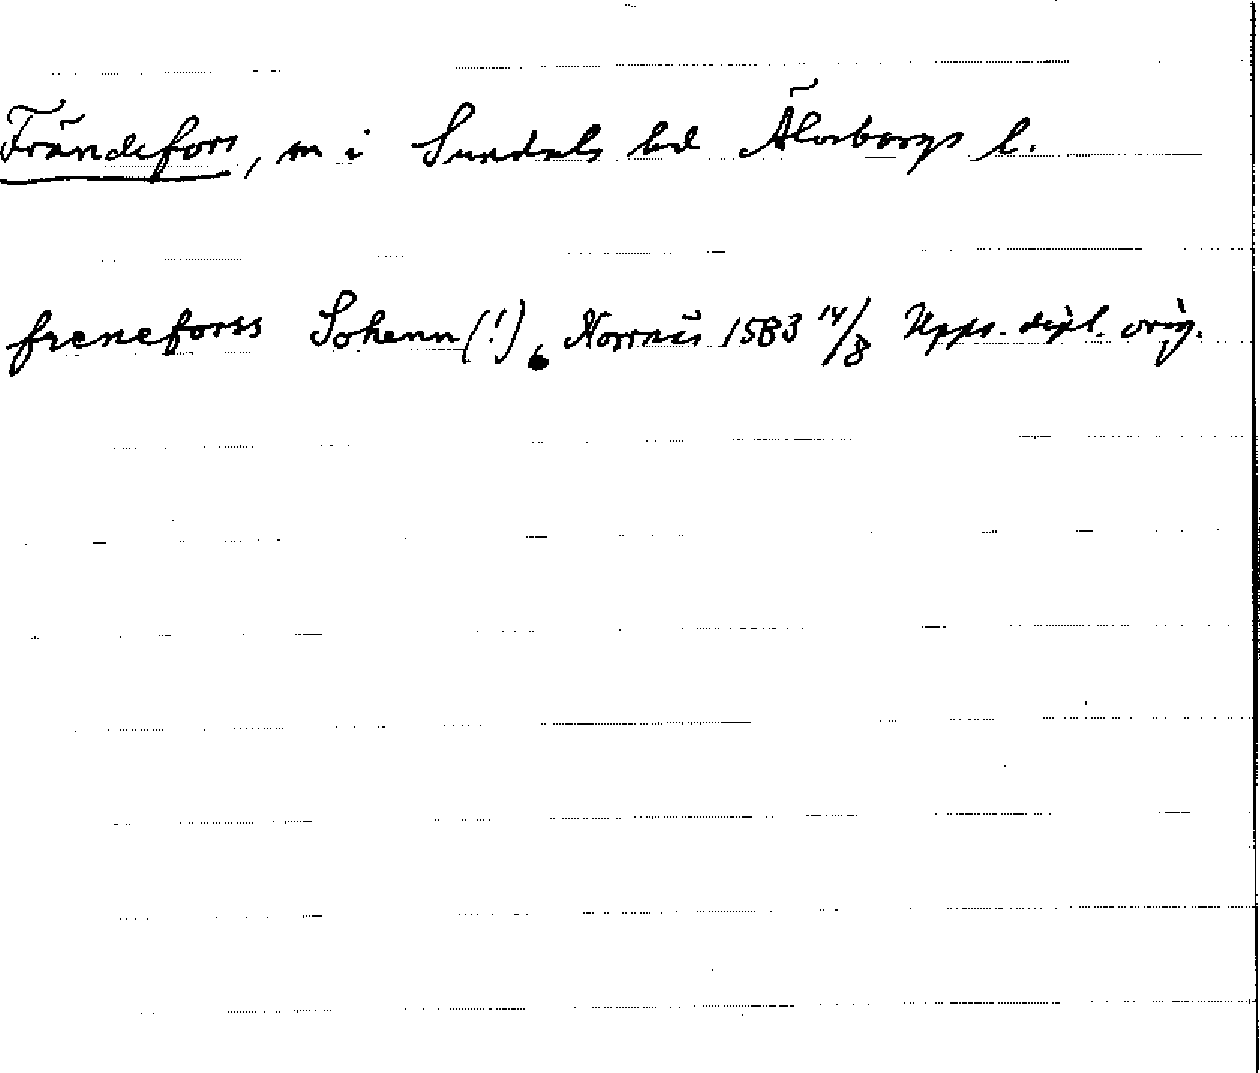 Frändefors, sn i Sundals hd Älvsborgs l.
freneforss Sokenn(!), Norrnäs 1583 14/8 Upps. dipl. orig.